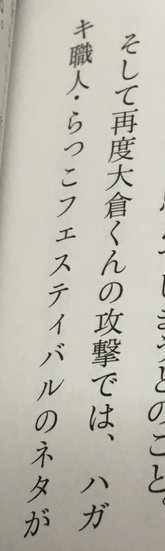 とのこと。
そして再度大倉くんの攻撃では、ハガ
キ職人・らっこフェスティバルのネタが